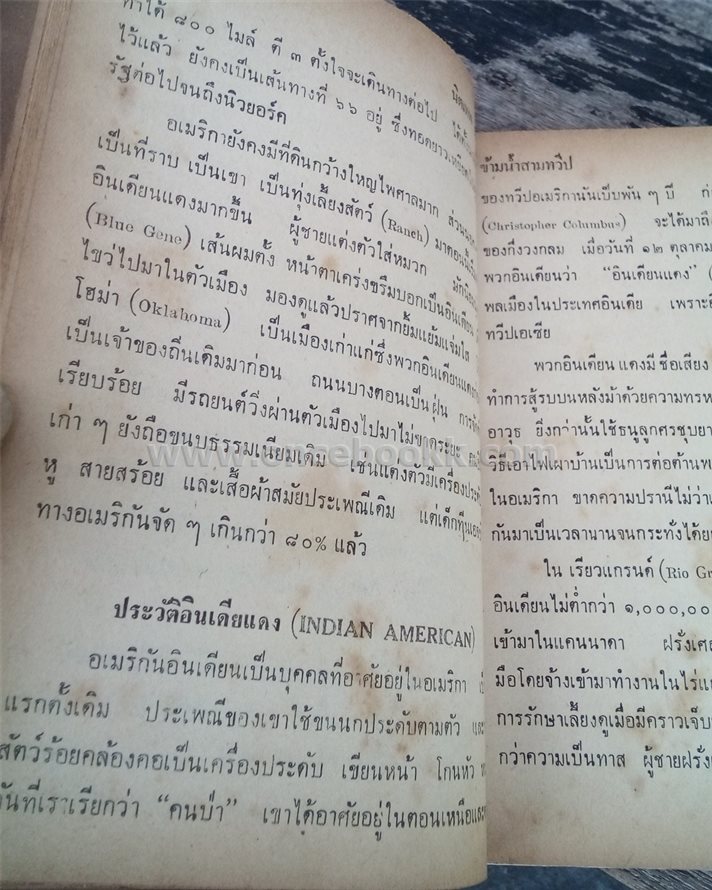 ทำได้ ๘๐๐ ไมล์ ตี ๓ ตั้งใจจะเดินทางต่อไป
ไว้แล้ว ยังคงเป็นเส้นทางที่ ๖๖ อยู่ ซึ่งทอดยาวเหยียด
รัฐต่อไปจนถึงนิวยอร์ค
อเมริกายังคงมีที่ดินกว้างใหญ่ไพศาลมาก
เป็นที่ราบ เป็นเขา เป็นทุ่งเลี้ยงสัตว์ (Ranch)
อินเดียนแดงมากขึ้น ผู้ชายแต่งตัวใส่หมวก
(Blue Gene) เส้นผมตั้ง หน้าตาเคร่งขรึมบอกเป็นอินเดียน
ไขว่ไปมาในตัวเมือง มองดูแล้วปราศจากยิ้มแย้มแจ่มใส
โฮม่า (Oklahoma) เป็นเมืองเก่าแก่ซึ่งพวกอินเดียนแดง
เป็นเจ้าของถิ่นเดิมมาก่อน ถนนบางตอนเป็นฝุ่น
เรียบร้อย มีรถยนต์วิ่งผ่านตัวเมืองไปมาไม่ขาดระยะ
เก่า ๆ ยังถือขนบธรรมเนียมเดิม เช่นแต่งตัวมีเครื่องประดับ
หู สายสร้อย และเสื้อผ้าสมัยประเพณีเดิม แต่เด็กรุ่น
ทางอเมริกันจัด ๆ เกินกว่า ๘๐% แล้ว
ประวัติอินเดียแดง (INDIAN AMERICAN)
อเมริกันอินเดียนเป็นบุคคลที่อาศัยอยู่ในอเมริกา
แรกดั้งเดิม ประเพณีของเขาใช้ขนนกประดับตามตัว และ
สัตว์ร้อยคล้องคอเป็นเครื่องประดับ เขียนหน้า โกนหัว
ที่เราเรียกว่า “คนป่า” เขาได้อาศัยอยู่ในตอนเหนือและ
ข้ามน้ำสามทวีป
ของทวีปอเมริกานับเป็นพัน ๆ ปี
(Christopher Columbus) จะได้มาถึง
ของกึ่งวงกลม เมื่อวันที่ ๑๒ ตุลาคม
พวกอินเดียนว่า “อินเดียนแดง”
พลเมืองในประเทศอินเดีย เพราะ
ทวีปเอเซีย
พวกอินเดียนแดงมีชื่อเสียง
ทำการสู้รบบนหลังม้าด้วยความทรหด
อาวุธ ยิ่งกว่านั้นใช้ธนูลูกศรชุบยา
วิธีเอาไฟเผาบ้านเป็นการต่อต้าน
ในอเมริกา ขาดความปรานีไม่ว่า
กันมาเป็นเวลานานจนกระทั่งได้
ใน เรียวแกรนด์ (Rio Gr
อินเดียนไม่ต่ำกว่า ๑,๐๐๐,๐๐
เข้ามาในแคนนาดา ฝรั่งเศส
มือโดยจ้างเข้ามาทำงานในไร่
การรักษาเลี้ยงดูเมื่อมีคราวเจ็บ
กว่าความเป็นทาส ผู้ชายฝรั่ง